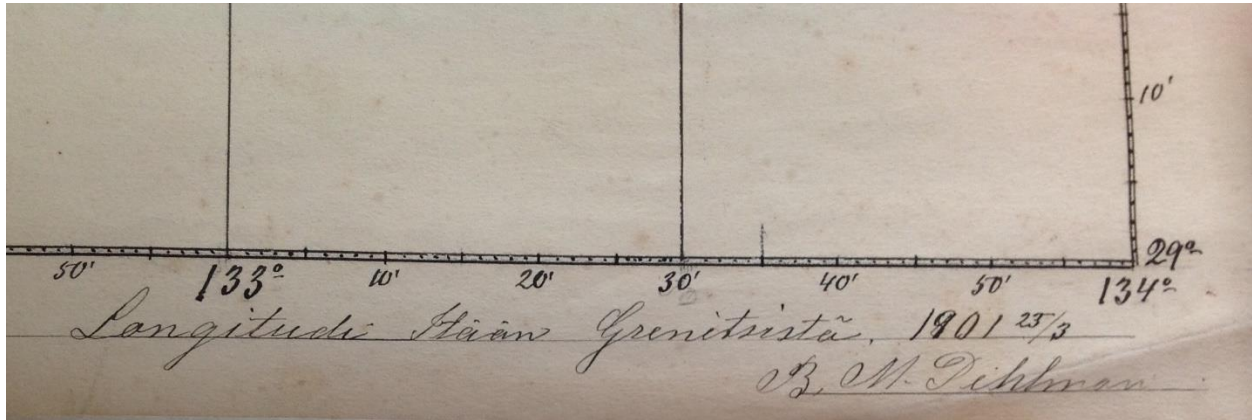 10'
29°
50' 133° 10' 20' 30' 40' 50' 134°
Longitudi Itään Grenitsistä. 1901 23/3
B. M. Dihlman